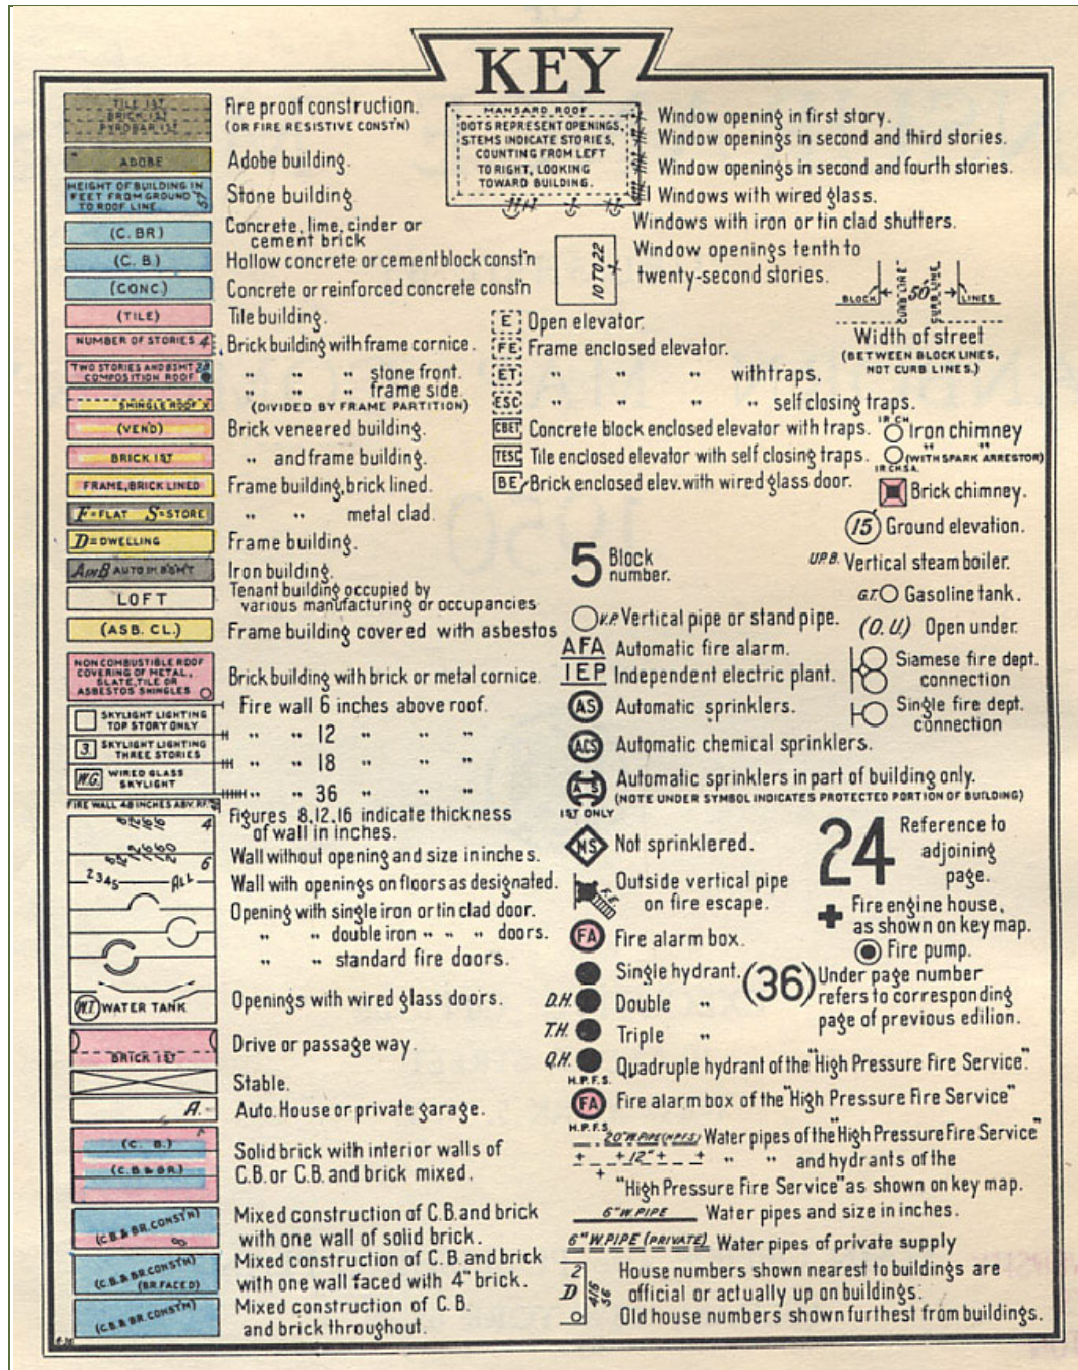 KEY
TILE 1ST
BRICK 1ST
PYROBAR 1ST
Fire proof construction.
(OR FIRE RESISTIVE CONST'N)
ADOBE
Adobe building.
HEIGHT OF BUILDING IN
FEET FROM GROUND
TO ROOF LINE.
Stone building
(C. BR)
Concrete, lime, cinder or
cement brick
(C. B.)
Hollow concrete or cement block const'n
(CONC.)
Concrete or reinforced concrete const'n
(TILE)
Tile building.
NUMBER OF STORIES 4
Brick building with frame cornice.
TWO STORIES AND BSMT 2B
COMPOSITION ROOF
" " " stone front.
" " " frame side.
SHINGLE ROOF X
(DIVIDED BY FRAME PARTITION)
(VEN'D)
Brick veneered building.
BRICK 1ST
" and frame building.
FRAME, BRICK LINED
Frame building, brick lined.
F=FLAT S=STORE
" " metal clad.
D=DWELLING
Frame building.
A IN B AUTO IN B'SM'T
Iron building.
LOFT
Tenant building occupied by
various manufacturing or occupancies
(ASB. CL.)
Frame building covered with asbestos
NON COMBUSTIBLE ROOF
COVERING OF METAL,
SLATE, TILE OR
ASBESTOS SHINGLES
Brick building with brick or metal cornice.
SKYLIGHT LIGHTING
TOP STORY ONLY
Fire wall 6 inches above roof.
3 SKYLIGHT LIGHTING
THREE STORIES
" " 12 " " "
" " 18 " " "
W.G. WIRED GLASS
SKYLIGHT
" " 36 " " "
FIRE WALL 48 INCHES ABV. RF.
Figures 8,12,16 indicate thickness
of wall in inches.
4
Wall without opening and size in inches.
6
2345 ALL
Wall with openings on floors as designated.
Opening with single iron or tin clad door.
" " double iron " " " doors.
" " standard fire doors.
W.T. WATER TANK
Openings with wired glass doors.
BRICK 1ST
Drive or passage way.
Stable.
A.
Auto. House or private garage.
(C. B.)
(C.B.& BR.)
Solid brick with interior walls of
C.B. or C.B. and brick mixed.
(C.B.& BR. CONST'N)
Mixed construction of C.B. and brick
with one wall of solid brick.
(C.B.& BR. CONST'N)
(BR. FACED)
Mixed construction of C.B. and brick
with one wall faced with 4" brick.
(C.B.& BR. CONST'N)
Mixed construction of C.B.
and brick throughout.
MANSARD ROOF
DOTS REPRESENT OPENINGS,
STEMS INDICATE STORIES,
COUNTING FROM LEFT
TO RIGHT, LOOKING
TOWARD BUILDING.
Window opening in first story.
Window openings in second and third stories.
Window openings in second and fourth stories.
Windows with wired glass.
Windows with iron or tin clad shutters.
10 TO 22
Window openings tenth to
twenty-second stories.
BLOCK CURB LINE 50' CURB LINE LINES
Width of street
(BETWEEN BLOCK LINES,
NOT CURB LINES.)
E Open elevator.
FE Frame enclosed elevator.
ET " " " with traps.
ESC " " " " self closing traps.
CBET Concrete block enclosed elevator with traps.
TESC Tile enclosed elevator with self closing traps.
BE Brick enclosed elev. with wired glass door.
IR. CH.
Iron chimney
" "
(WITH SPARK ARRESTOR)
IR. CH. S.A.
Brick chimney.
15 Ground elevation.
5 Block
number.
U.P.B. Vertical steam boiler.
G.T. Gasoline tank.
V.P. Vertical pipe or stand pipe.
(O. U.) Open under.
AFA Automatic fire alarm.
IEP Independent electric plant.
Siamese fire dept.
connection
AS Automatic sprinklers.
Single fire dept.
connection
ACS Automatic chemical sprinklers.
A S Automatic sprinklers in part of building only.
(NOTE UNDER SYMBOL INDICATES PROTECTED PORTION OF BUILDING)
1ST ONLY
NS Not sprinklered.
24 Reference to
adjoining
page.
F.E. Outside vertical pipe
on fire escape.
Fire engine house,
as shown on key map.
FA Fire alarm box.
Fire pump.
Single hydrant.
(36) Under page number
refers to corresponding
page of previous edition.
D.H. Double "
T.H. Triple "
Q.H. Quadruple hydrant of the "High Pressure Fire Service".
H.P.F.S.
FA Fire alarm box of the "High Pressure Fire Service"
H.P.F.S.
20" W. PIPE (H.P.F.S.) Water pipes of the "High Pressure Fire Service"
12" " " and hydrants of the
"High Pressure Fire Service" as shown on key map.
6" W. PIPE Water pipes and size in inches.
6" W. PIPE (PRIVATE) Water pipes of private supply
2
D
416
56
House numbers shown nearest to buildings are
official or actually up on buildings.
Old house numbers shown furthest from buildings.